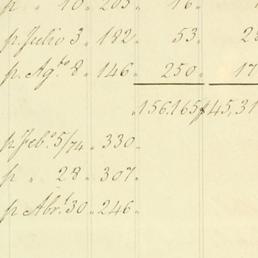 p " 10 " 203 " 16
p. Julio 3 " 182 " 53. 2
p. Agto. 8 " 146 " 250 " 17
" 156.165 $45,31
p Febo. 5/74 " 330 "
p " 28 " 307 "
p Abrl. 30 " 246 "